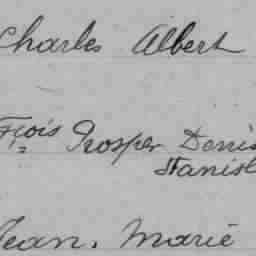 Charles Albert
Fçois Prosper Denis
Stanisl
Jean. Marie